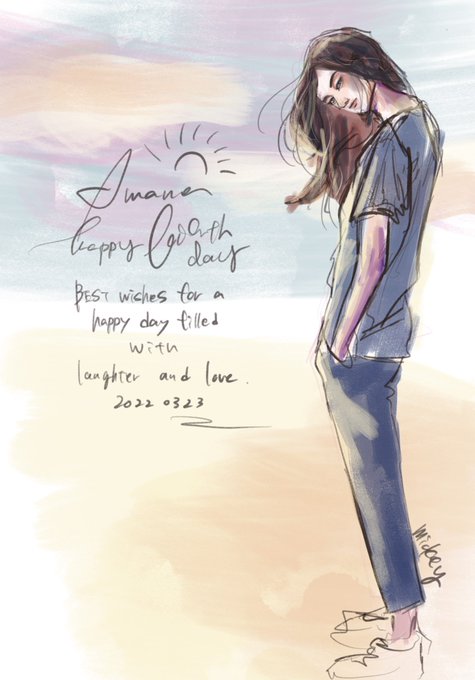 Amana
happy birth
day
BEST wishes for a
happy day filled
with
laughter and love.
2022 0323